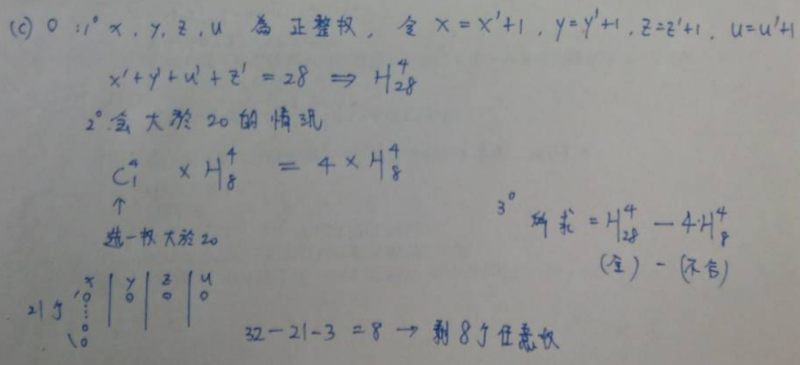 (c) 0 : 1° x, y, z, u 為正整数, 令 x=x'+1, y=y'+1, z=z'+1, u=u'+1
x'+y'+u'+z' = 28 ⇒ H⁴₂₈
2° 会大於20的情況
C⁴₁ × H⁴₈ = 4 × H⁴₈
↑
選一数大於20
3° 所求 = H⁴₂₈ − 4·H⁴₈
(全) − (不合)
x | y | z | u
21个 0 0 0 0
32−21−3 = 8 → 剩8个任意放